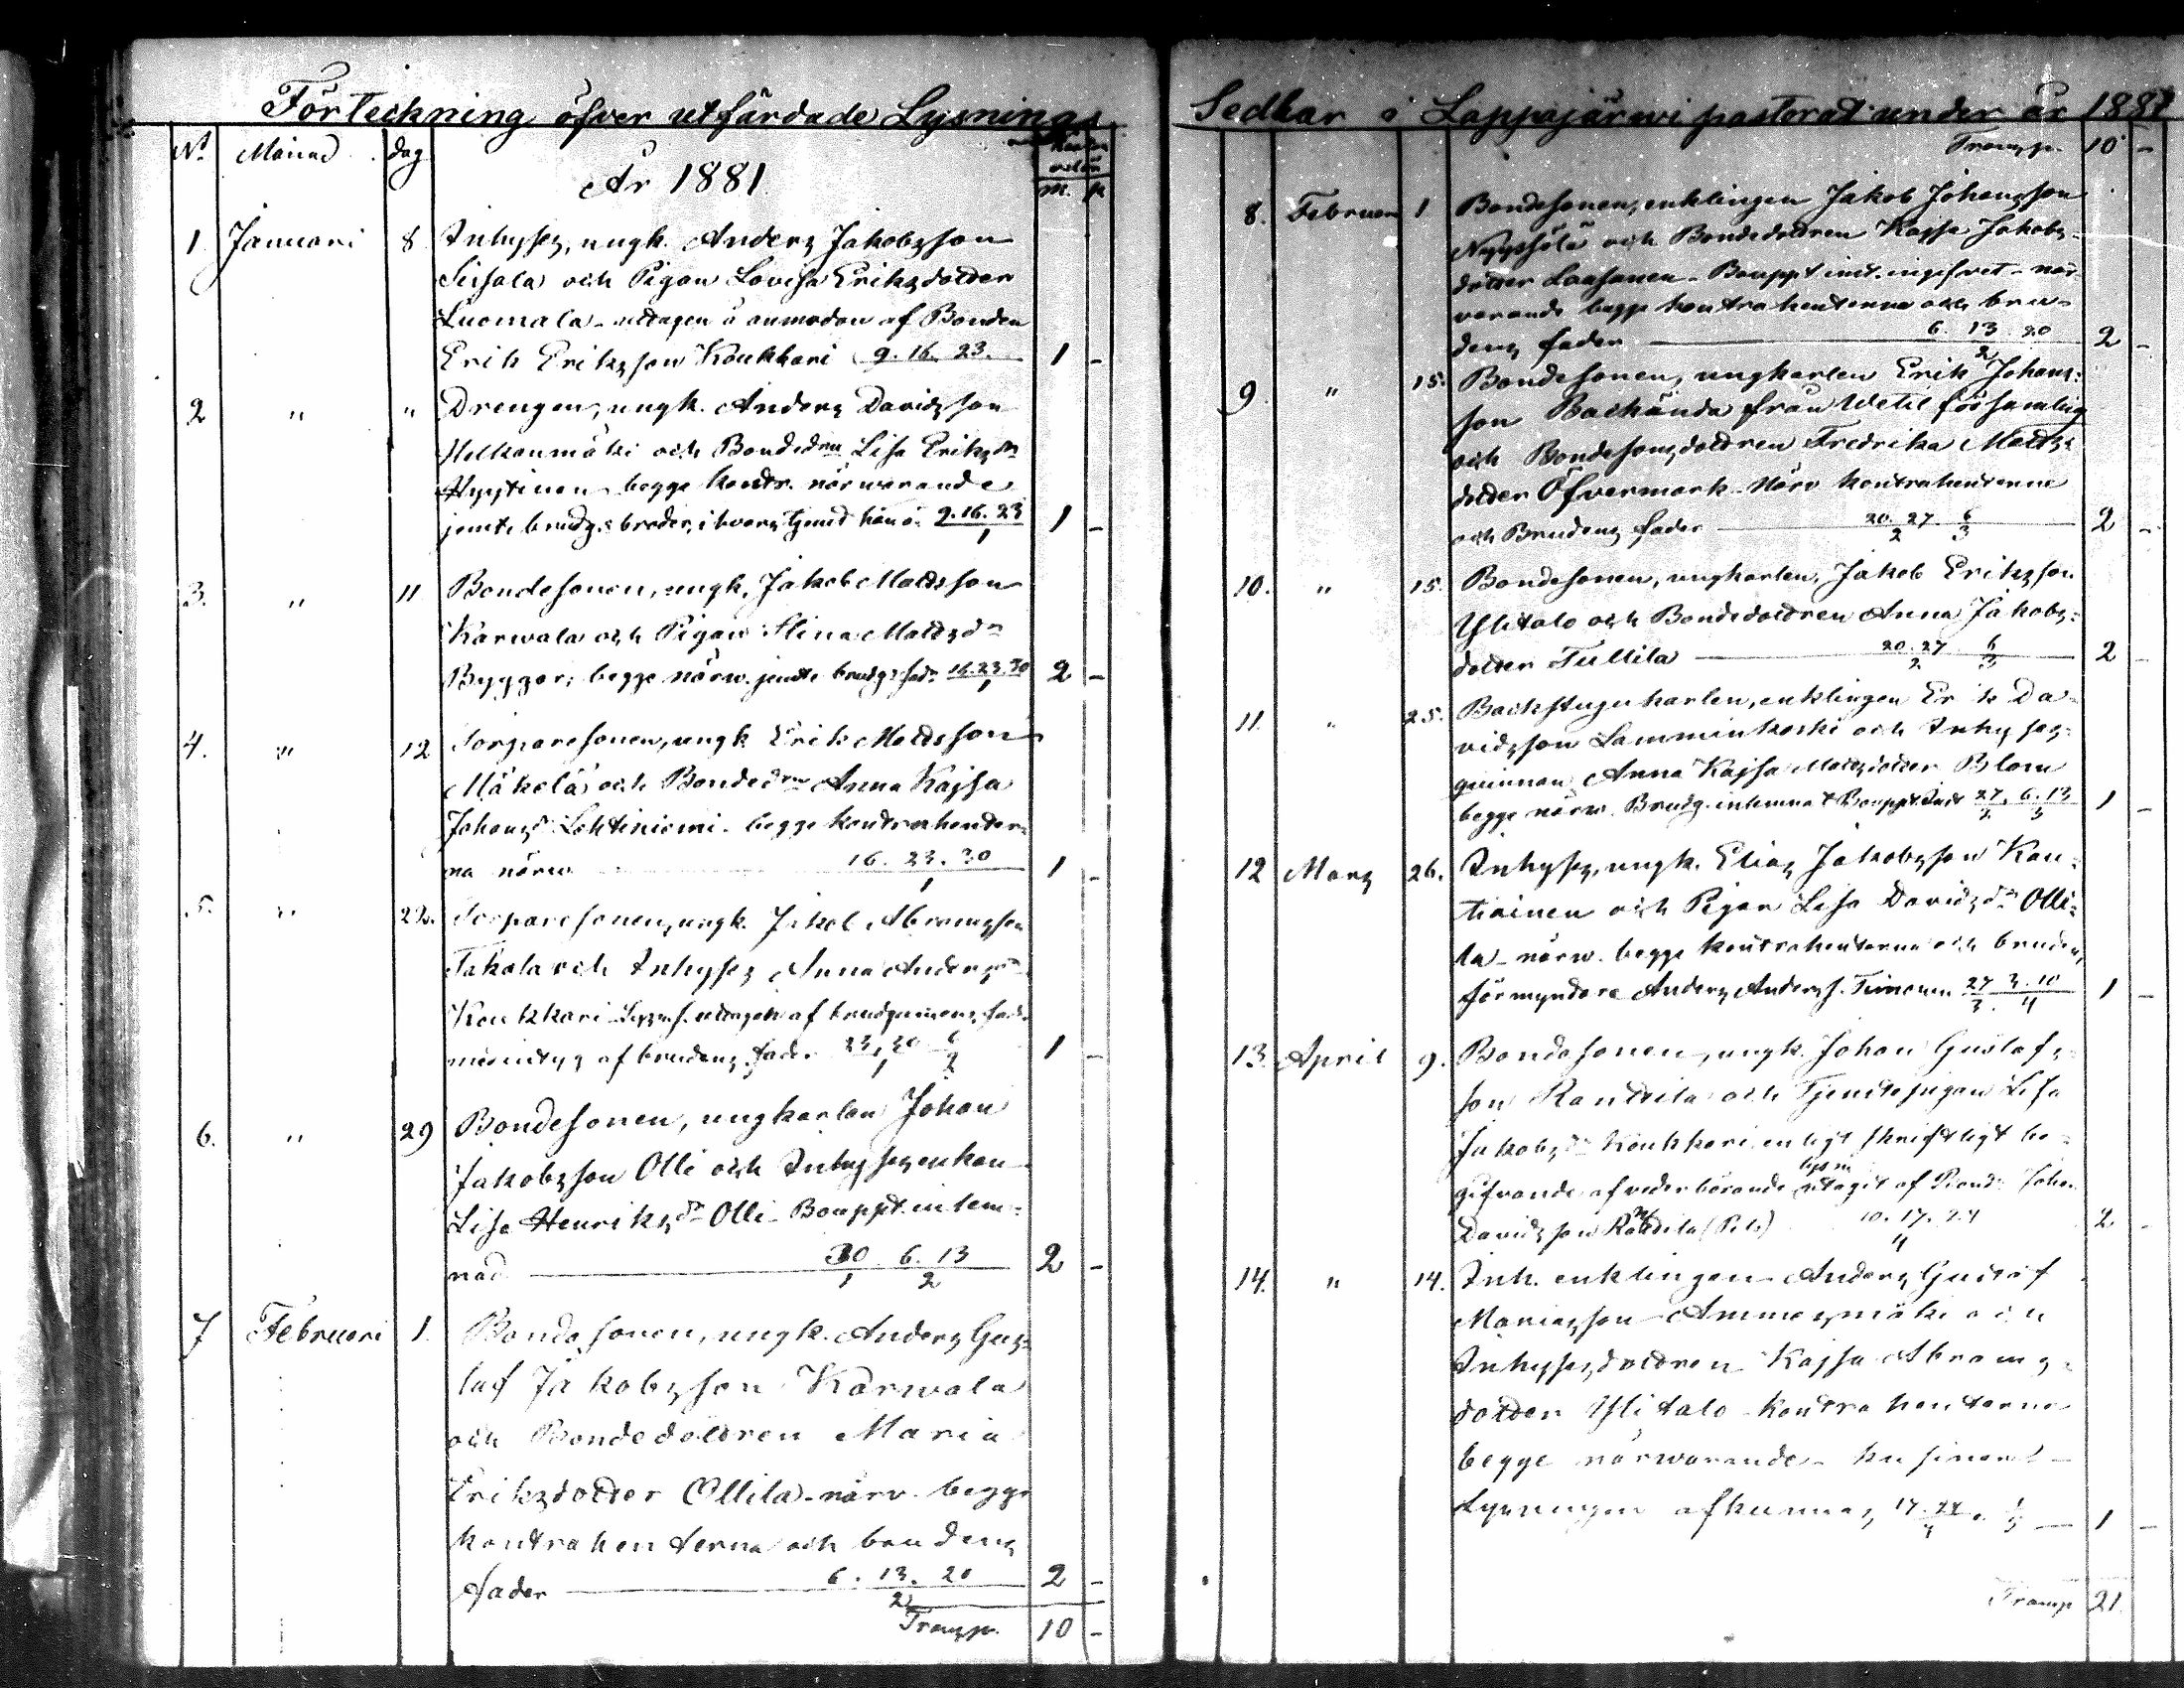 Förteckning öfver utfärdade Lysnings
No Månad dag
m. p.
År 1881
1. Januari 8 Inhyses, ungk. Anders Jakobsson
Sisala och Pigan Lovisa Eriksdotter
Luomala - uttagen å anmodan af Bonden
Erik Eriksson Koukkari 9. 16. 23. 1 -
2 " " Drengen, ungk. Anders Davidsson
och Bondedrn Lisa Eriksdr
Hyytinen begge kontr. närvarande
jemte brudg:s broder, i hvars tjenst han ä: 9.16.23 1 -
1
3. " 11 Bondesonen, ungk. Jakob Mattsson
Karwala och Pigan Stina Mattsdr
Byggar; begge närw. jemte brudgs fadr 16.23.30 2 -
1
4. " 12 Torparesonen, ungk Erik Mattsson
Mäkelä och Bondedrn Anna Kajsa
Johansdr Lehtiniemi. begge kontrahenter-
na närw 16. 23. 30 1 -
1
5. " 22. Torparesonen, ungk. Jakob Abramsson
Takala och Inhyses Anna Andersdr
Koukkari uttagen af brudgummens fadr
af brudens fader 23. 30 6 1 -
1 2
6. " 29 Bondesonen, ungkarlen Johan
Jakobsson Olli och Inhysesenkan
Lisa Henriksdr Olli - Bouppt. inlem-
nad 30. 6. 13 2 -
1 2
7 Februari 1. Bondesonen, ungk. Anders Gus-
taf Jakobsson Karwala
och Bondedottren Maria
Eriksdotter Ollila - närv. begge
kontrahenterna och brudens
fader 6. 13. 20 2 -
2
Transp. 10 -
Sedlar i Lappajärwi pastorat under år 1881
Transp. 10 -
8. Februari 1 Bondesonen, enklingen Jakob Johansson
och Bondedottren Kajsa Jakobs-
dotter Laasanen - Bouppt inst. ingifvet - när-
varande begge kontrahenterna och bru-
dens fader 6. 13. 20 2 -
2
9. " 15. Bondesonen, ungkarlen Erik Johans-
son Backända från Wetil församling
och Bondesonsdottren Fredrika Matts-
dotter Öfvermark - Närv kontrahenterne
och Brudens fader 20. 27. 6 2 -
2 3
10. " 15. Bondesonen, ungkarlen, Jakob Eriksson
Ylitalo och Bondedottren Anna Jakobs-
dotter Tullila 20. 27 6 2 -
2 3
11. " 25. Backstugukarlen, enklingen Erik Da-
vidsson Lamminkoski och Inhyses-
quinnan Anna Kajsa Mattsdotter Blom
begge närw. Brudg. inlemnat Bouppt. Inst 27. 6. 13 1 -
2 3
12 Mars 26. Inhyses, ungk. Elias Jakobsson Kan-
tiainen och Pigan Lisa Davidsdr Olli-
la - närw. begge kontrahenterna och brudens
förmyndare Anders Anderss. Timonen 27 3. 10 1 -
3. 4
13. April 9. Bondesonen, ungk. Johan Gustafs-
son Rantila och Tjenstepigan Lisa
Jakobsdr Koukkari enligt skriftligt be-
gifvande af vederbörande uttagit af Bond. Johan
Davidsson Rantila 10. 17. 24 2 -
4
14. " 14. Inh. enklingen Anders Gustaf
Mariasson Ammesmäki och
Inhysesdottren Kajsa Abrams-
dotter Ylitalo - kontrahenterna
begge närwarande -
Lysningen afkunnas 17. 24. 1 1 -
4 5
Transp 21.